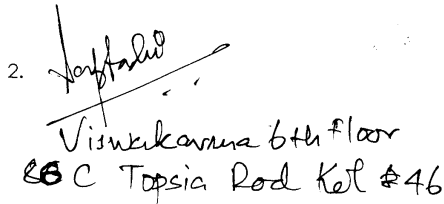 2.
Viswakarma 6th floor
86 C Topsia Rod Kol 46